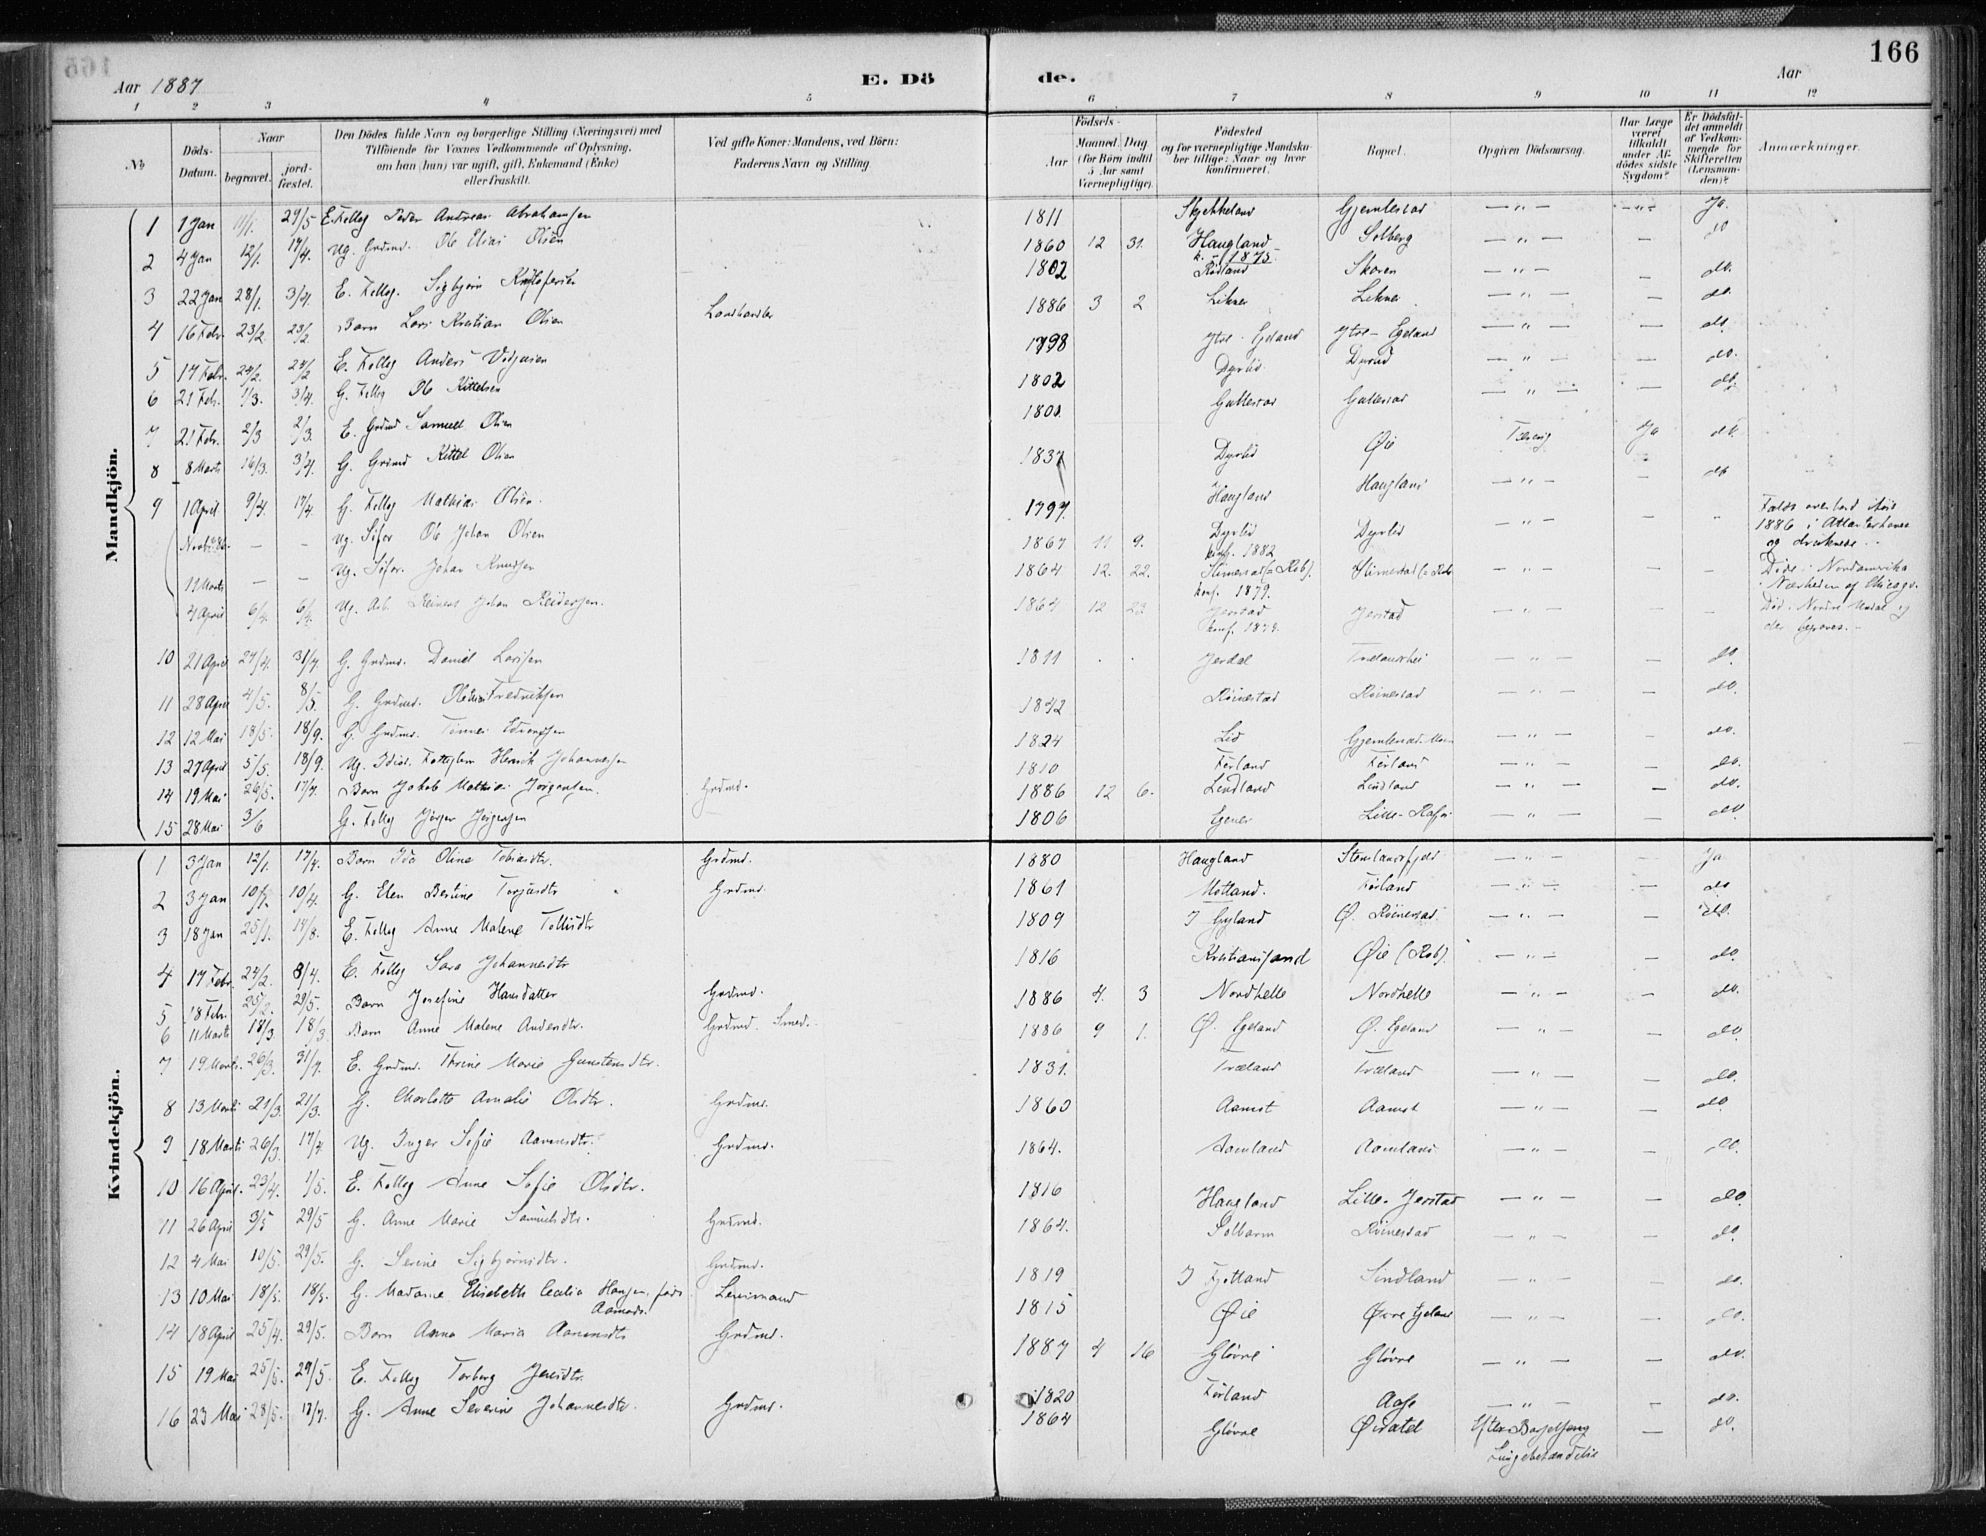 166
Aar 1887 E. Dö de. Aar
1 2 3 4 5 6 7 8 9 10 11 12
№ Döds-Datum. Naar begravet. jordfæstet. Den Dödes fulde Navn og borgerlige Stilling (Næringsvei) med Tilföiende for Voxnes Vedkommende af Oplysning, om han (hun) var ugift, gift, Enkemand (Enke) eller fraskilt. Ved gifte Koner: Mandens, ved Börn: Faderens Navn og Stilling Födsels- Aar Maaned Dag (for Börn indtil 5 Aar samt Værnepligtige). Födested og for værnepligtige Mandskaber tillige: Naar og hvor konfirmeret. Bopæl. Opgiven Dödsaarsag. Har Læge været tilkaldt under Afdödes sidste Sygdom? Er Dödsfaldet anmeldt af Vedkommende for Skifteretten (Lensmanden)? Anmærkninger.
Mandkjön.
1 1 Jan 11/1. 29/5 E. Follog Peder Andreas Abrahamsen 1811 Gjemlestad — " — — " — Ja.
2 4 Jan 12/1. 17/4. Ug. Grdmd. Ole Elias Olsen 1860 12 31. Haugland k. 1875. Solberg — " — — do
3 22 Jan 28/1. 3/4. E. Follog. Sigbjørn 1802 Rødland Skoren — " — — do.
4 16 Febr 23/2. 23/2 Barn Lars Kristian Olsen Landhandler 1886 3 2 Liknes Liknes — " — — do.
5 17 Febr. 24/2. 24/2 E. Follog Anders 1798 Ytre-Egeland Ytre-Egeland — " — — do.
6 21 Febr. 1/3. 3/4. G. Follog Ole Kittelsen 1802 Dyrlid — " — — do.
7 21 Febr. 2/3 2/3. E. Grdmd Samuel Olsen Gullestad Gullestad — " — — do.
8 8 Marts 16/3. 3/4. G. Grdmd Kittel Olsen 1837 Dyrlid Øie Tæring Ja do.
9 1 April 9/4. 17/4. G. Follog Mathias Olsen. 1797. Haugland Haugland — " — — do
Novbr. 86. — — Ug. Søfor Ole Johan Olsen 1867 11 9. Dyrlid konf. 1882 Dyrlid — " — — " Faldt overbord 1886 i Atlanterhavet og druknede.
11 Marts — — Ug. Søfor. Johan Knudsen 1864. 12. 22. konf. 1879. — " — — — Døde i Nordamerika i Nærheden af Chicago.
4 April 6/4. 6/4. Ug. Arb. Reinert Johan Reidersen. 1864 12 23 Jerstad Jerstad — " — — — Død i Nordre Undal og der begraves.
10 21 April 27/4. 31/7. G. Grdmd. Daniel Larsen 1811 Jerdal — " — — do.
11 28 April 4/5. 8/5. G. Grdmd. Fredriksen 1842 Röinestad Röinestad — " — — do.
12 12 Mai 18/5. 18/9. G. Grdmd. Tønnes 1824 Lid — " — — do.
13 27 April 5/5. 18/9. Ug. Henrik Johannessen 1810 Førland Førland — " — — do.
14 19 Mai 26/5. 17/7. Barn Jakob Mathias Jørgensen. Grdmd. 1886 12 6. Lindland Lindland — " — — do.
15 28 Mai 3/6 G. Follog Jørgen Jørgensen 1806 Egenes — " — — do.
Kvindekjön.
1 3 Jan 12/1. 17/4. Barn Ida Oline Tobiasdtr. Grdmd. 1880 Haugland Stemlandsfjeld — " — — Ja
2 3 Jan 10/1. 10/4. G. Elen Bertine Torjusdtr Grdmd. 1861 Motland. Førland — " — — do
3 18 Jan 25/1. 14/8. E. Follog Anne Malene 1809 I Gyland Ø. Röinestad. — " — — do.
4 17 Febr. 24/2. 8/4. E. Follog Sara Johannesdtr 1816 Kristianssand Øie (Rob). — " — — do.
5 18 Febr. 25/2. 29/5. Barn Josefine Hansdatter Grdmd. 1886 4. 3 Nordhelle Nordhelle — " — — do.
6 11 Marts 18/3. 18/3. Barn Anne Malene Andersdtr. Grdmd. Smed. 1886 9 1. Ø. Egeland Ø. Egeland — " — — do
7 19 Marts. 26/3. 31/7. E. Grdmd. Thrine Marie Gunstensdtr. 1831. Træland Træland — " — — do.
8 13 Marts 21/3. 21/3. G. Charlotte Amalie Olsdtr. Grdmd. 1860 Aamot Aamot — " — — do.
9 18 Marts 26/3. 17/4. Ug. Inger Sofie Aanensdtr. Grdmd. 1864. Aamland Aamland — " — — do.
10 16 April. 23/4. 1/5. E. Follog Anne Sofie Olsdtr. 1816 Haugland Lille-Jerstad — " — — do.
11 26 April 3/5 29/5 G. Anne Marie Samuelsdtr. Grdmd. 1864. Solbarm Röinestad — " — — do.
12 4 Mai 10/5. 29/5. G. Serine Sigbjørnsdtr. Grdmd. 1819 I Fjotland Sindland — " — — do.
13 10 Mai 18/5. 18/5. G. Madame Elisabeth Cecilia Hansen, født Aamodt. Lensmand 1815 Øie Øvre Egeland — " — — do.
14 18 April 25/4. 29/5. Barn Anna Maria Aanensdtr Grdmd. 1887 4 16 Gløvre Gløvre — " — — do.
15 19 Mai 25/5. 29/5. E. Follog Torborg Jensdtr. 1820 Førland Aase — " — — do.
16 23 Mai 28/5. 17/7. G. Anne Severine Johannesdtr. Grdmd. 1864 Gløvre Øiedalel Efter Barselseng Lungebetændelse — do.